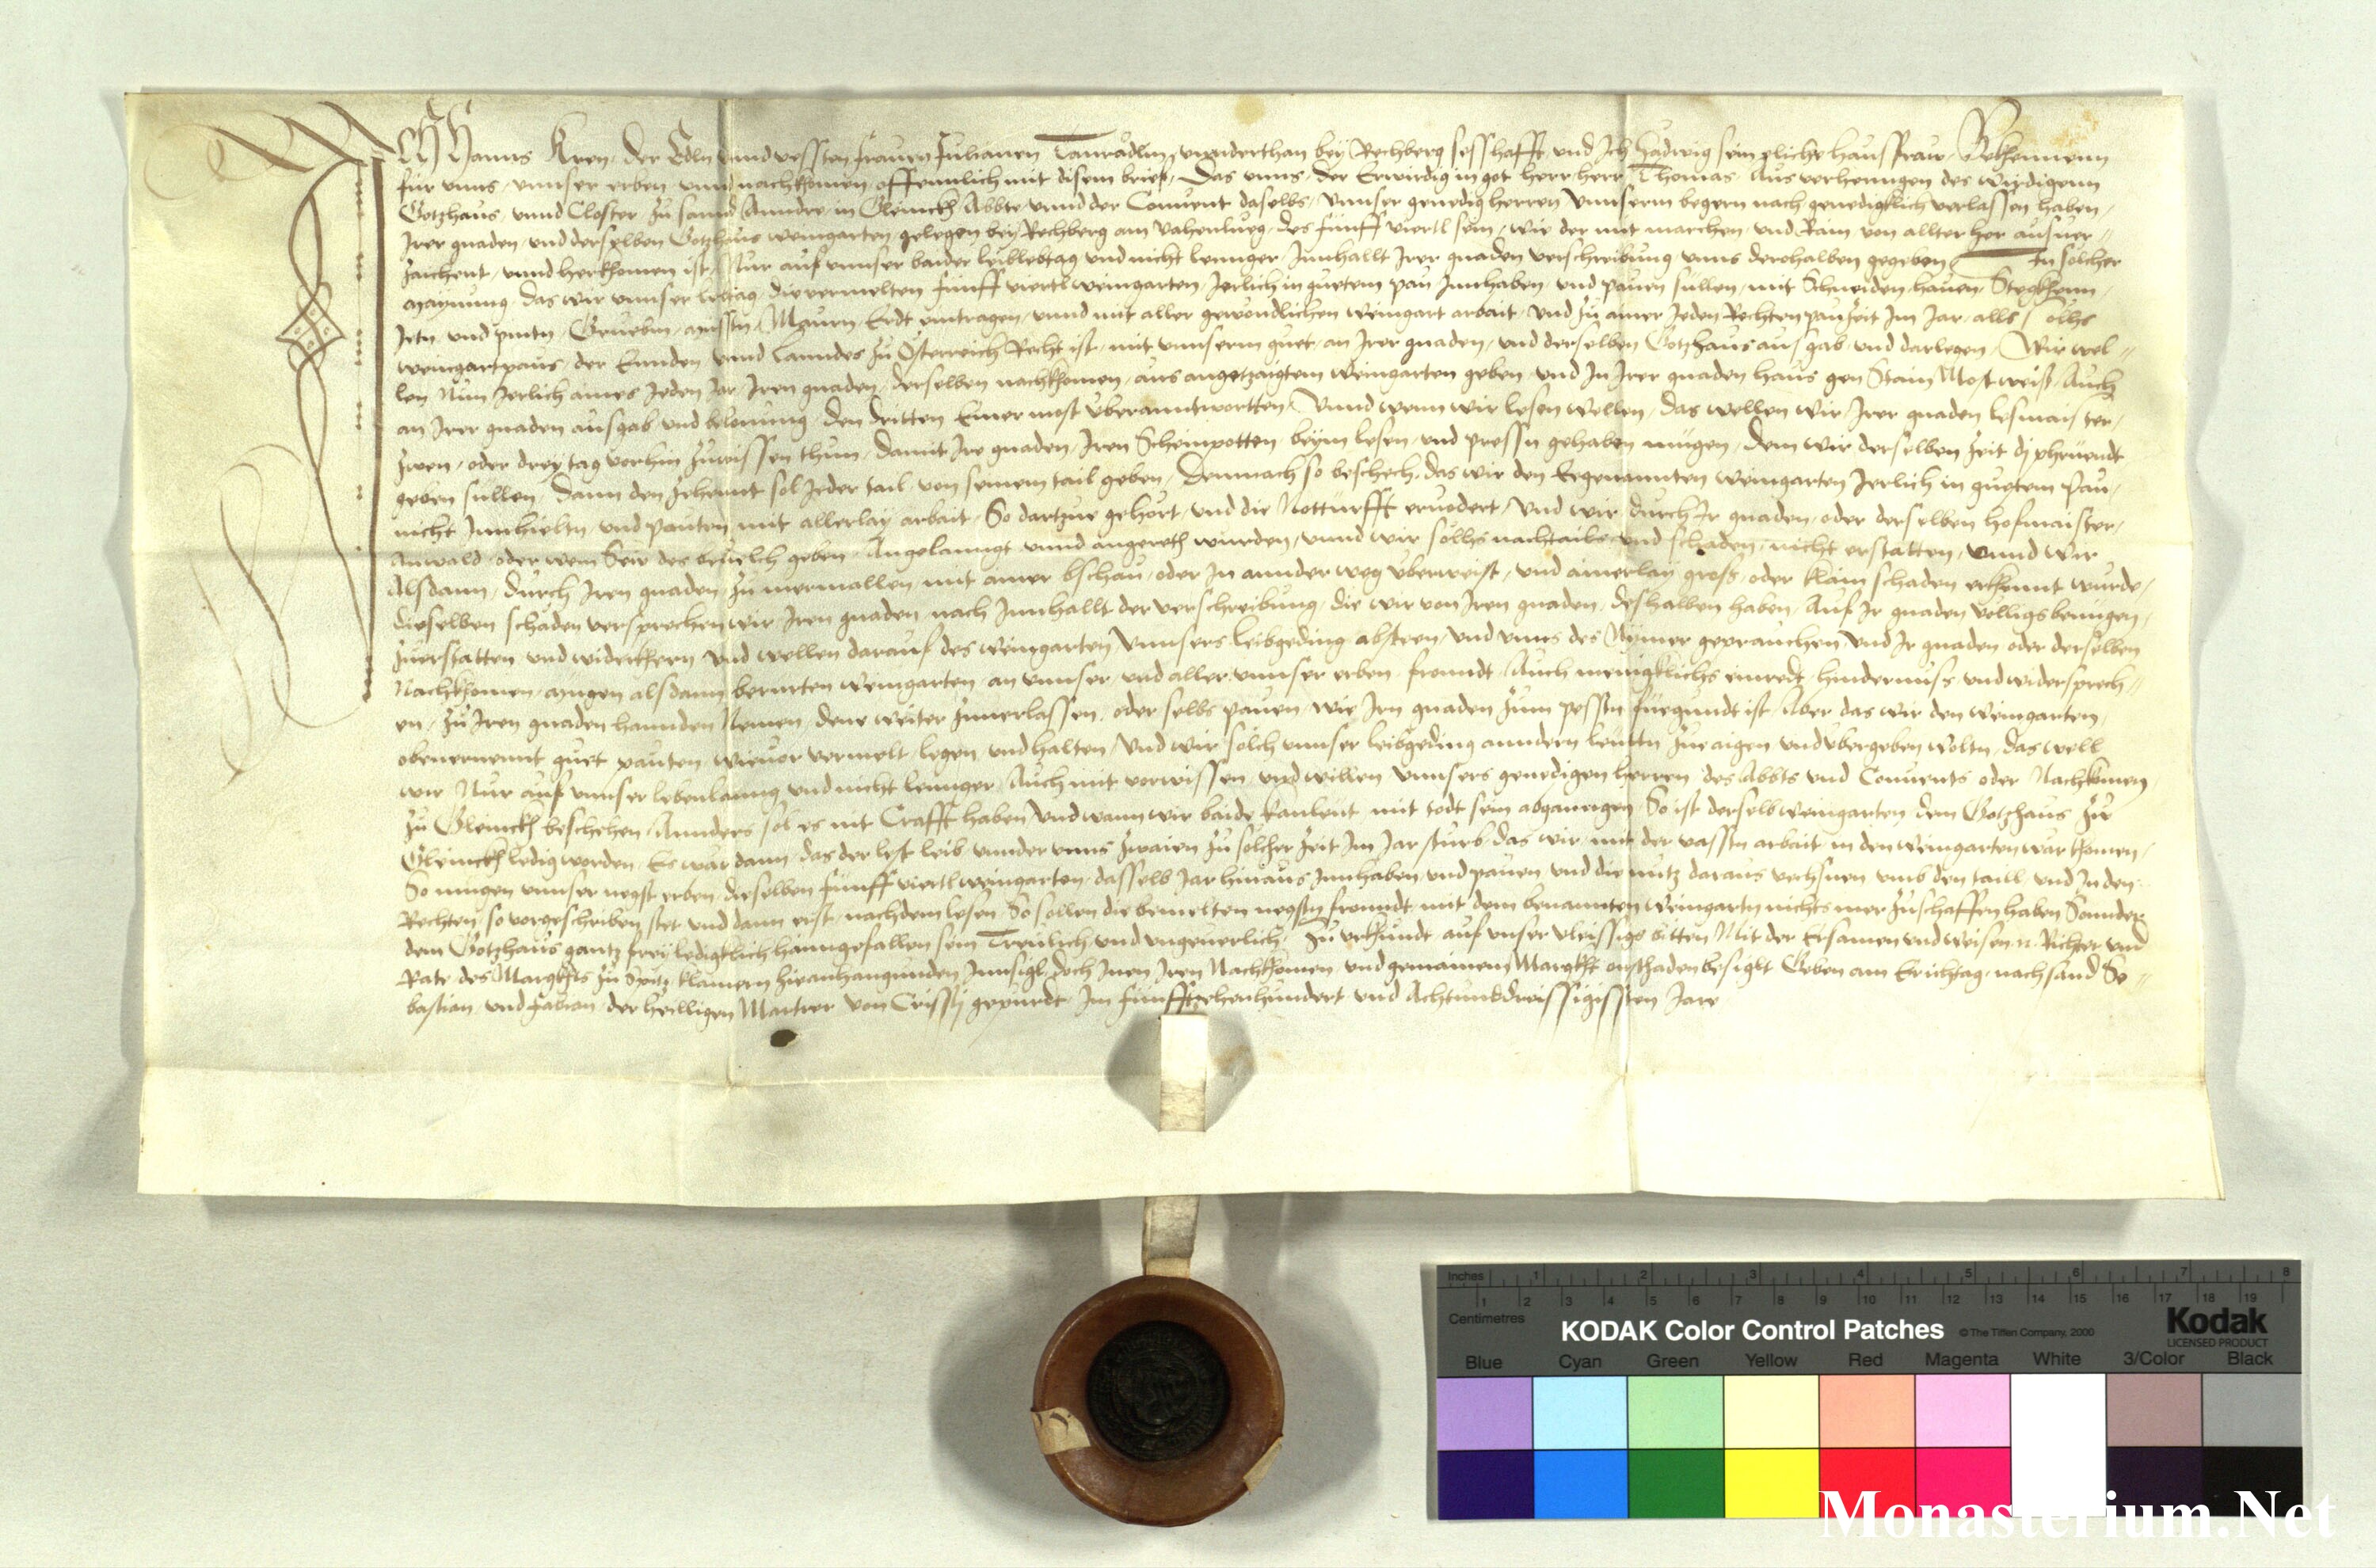 ICH Hanns Kren, der Edln vnnd vessten frauen Julianen Tanrädlin, vnnderthan bey Rechberg sesshafft vnd Ich Hadwig sein eliche hausfraw, Bekhennenn
für vnns, vnnser erben vnnd nachkhomen, offennlich mit disem brief, Das vnns, der Erwirdig in got herr herr Thomas, Aus verhenngen des wirdigenn
Gotzhaus, vnnd Closter zu sannd Anndre in Gleinckh Abbte vnnd der Conuent daselbs, vnnser genedig herren Vnnserm begern nach genedigklich verlassen haben,
Irer gnaden, vnd derselben Gotzhaus weingarten gelegen bey Rechberg am Vahenlueg, des fünff viertl sein, wie der mit marchen, vnd Rain von allter her ausuer-
zaichent, vnnd herkhomen ist, Nur auf vnnser baider leiblebtag vnd nicht lennger, Innhallt Irer gnaden verschreibung vnns derohalben gegeben In solcher
maynung, das wir vnnser lebtag, die vermelten fünff viertl weingarten, Jerlich in guetem pau Innhaben, vnd pauen süllen, mit Schneiden, hauen, Stegkhenn,
Jetn vnd pintn, Gruebm, misstn, Mauern, Erdt eintragen, vnnd mit aller gewondlichen weingart arbait, vnd zu ainer Jeden Rechten pauzeit Im Jar, alls solhs
weingartpaus, der Ennden vnnd Lanndes zu Österreich Recht ist, mit vnnserm guet, an Irer gnaden, vnd derselben Gotzhaus ausgab, vnd darlegen, Wir wel-
len Nun Jerlich aines Jeden Jar Iren gnaden, derselben nachkhomen, aus angetzaigtem weingarten geben, vnd In Irer gnaden haus gen Stain Most weiß, Auch
an Irer gnaden ausgab vnd belonung den dritten Emer most überanntwortten, Vnnd wenn wir lesen wellen, das wellen wir, Irer gnaden lesmaister,
zwen, oder drey tag vorhin zuwissen thun, damit Ire gnaden, Iren Scheinpotten beym lesen, vnd pressn gehaben mügen, dem wir derselben zeit di phruendt
geben sullen, Dann den zehennt sol Jeder tail, von seinem tail geben, Demnach so beschech, das wir den Eegenannten weingarten Jerlich in guetem Pau,
nicht Innhieltn, vnd pauten mit allerlay arbait, So dartzue gehört, vnd die Notturfft eruodert, Vnd wir durch Ir gnaden, oder derselben hofmaister,
Anwald, oder wem Sew des beuelch geben, Angelanngt vnnd angeredt wurden, vnnd wir sollhs nachtails vnd schaden, nicht erstatten, vnnd wir
Alsdann, durch Iren gnaden, zu mermallen mit ainer bschau, oder In annder weg überweist, vnd ainerlay gross, oder klain schaden erkhennt wurde,
dieselben schäden versprechen wir Iren gnaden, nach Innhallt der verschreibung, die wir von Iren gnaden, deshalben haben, Auf Ir gnaden völligs benüegen,
zuerstatten vnd widerkhern Vnd wellen darauf des weingarten Vnnsers leibgeding absteen, vnd vnns des Nymer geprauchen, Vnd Ir gnaden oder derselben
Nachkhomen, mügen alsdann berurten weingarten, an vnnser, vnd aller vnnser erben, freundt, Auch menigklichs einredt, hindernuss vnd widersprech-
en, zu Iren gnaden hannden Nemen, denn weiter zuuerlassen, oder selbs pauen, wie Irn gnaden zum pesstn fuegundt ist, Aber das wir den weingarten,
obenernennt, guet pauten, wie uor vermelt, legen vnd halten, Vnd wir solch vnnser leibgeding anndern leuttn zue aigen vnd übergeben woltn, das well
wir Nur auf vnnser lebenlanng vnd nicht lennger, Auch mit vorwissen vnd willen Vnnsers genedigen herren des Abbts vnd Conuents oder Nachkomen
zu Gleinckh beschehen, Annders sol es nit Crafft haben, Vnd wann wir baide kanleut mit todt sein abganngen, So ist derselb weingarten dem Gotzhaus zu
Gleinckh ledig worden, Es wär dann, das der lest leib, vnnder vnns zwaien zu solher zeit Im Jar sturb, das wir, mit der vasstn arbait, in den weingarten wär khomen,
So mugen vnnser negst erben dieselben fünff viertl weingarten, dasselb Jar hinaus Innhaben, vnd pauen vnd die nutz daraus vechsnen vmb den taill, vnd In den
Rechten, so vorgeschriben stet, vnd dann erst, nach dem lesen So sollen die bemelten negstn freundt, mit dem benannten weingartn nichts mer zuschaffen haben Sonnder
dem Gotzhaus gantz frey ledigklich haimgefallen sein Treulich vnd vngeuerlich, Zu vrkundt, auf vnser vleissigs bitten, Mit der Ersamen vnd weisen N. Richter vnd
Rate, des Margkhts zu Spitz klainern hieanhangunden Innsigl, doch Inen Iren Nachkhomen, vnd gemainem Margkht on schaden besiglt Geben am Erichtag, nach sand Se-
bastian, vnd Fabian, der heilligen Martrer Von Cristj gepurdt, Im fünfftzehenhundert, vnd Achtunddreissigissten Jare
Inches 1 2 3 4 5 6 7 8
1 2 3 4 5 6 7 8 9 10 11 12 13 14 15 16 17 18 19
Centimetres
KODAK Color Control Patches ©The Tiffen Company, 2000 Kodak
LICENSED PRODUCT
Blue Cyan Green Yellow Red Magenta White 3/Color Black
Monasterium.Net